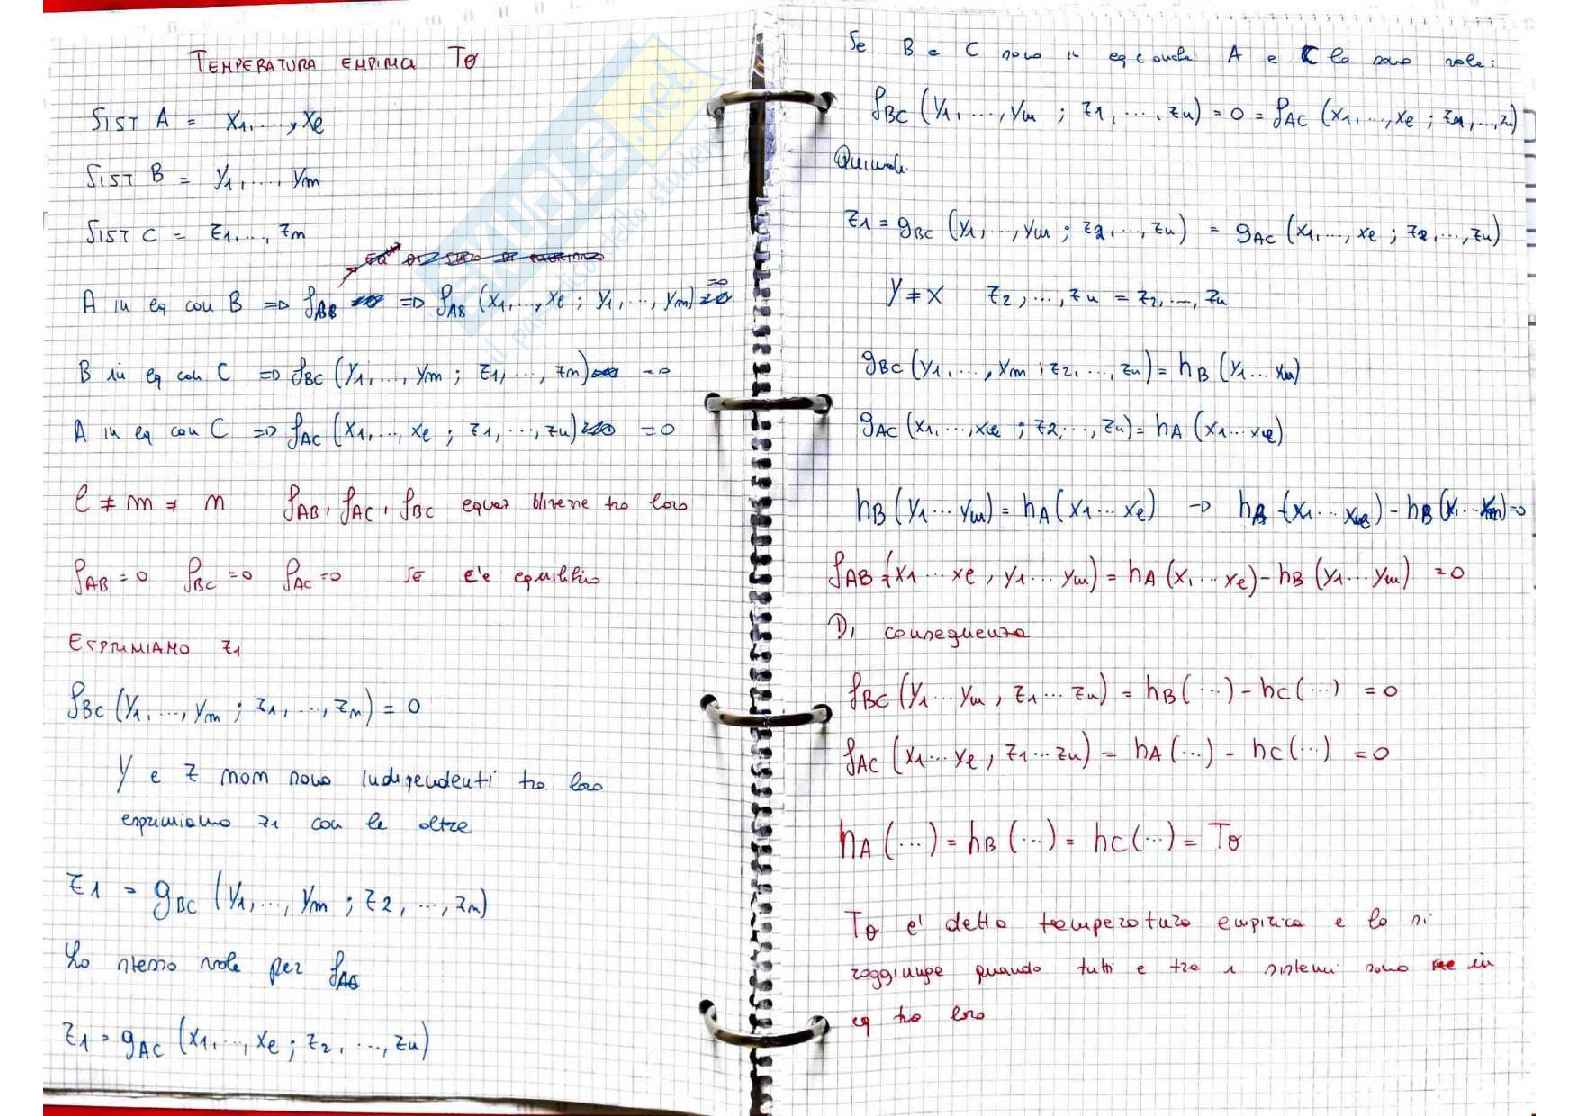 TEMPERATURA EMPIRICA Tθ
SIST A = x1,...,xe
SIST B = y1,...,ym
SIST C = z1,...,zn
A in eq con B => fAB => fAB (x1,...,xe ; y1,...,ym) =0
B in eq con C => fBC (y1,...,ym ; z1,...,zn) =0
A in eq con C => fAC (x1,...,xe ; z1,...,zn) =0
l ≠ m ≠ n fAB, fAC, fBC tra loro
fAB=0 fBC=0 fAC=0 se c'è equilibrio
ESPRIMIAMO z1
fBC (y1,...,ym ; z1,...,zn) = 0
Y e Z non sono indipendenti tra loro
esprimiamo z1 con le altre
z1 = gBC (y1,...,ym ; z2,...,zn)
Lo stesso vale per fAC
z1 = gAC (x1,...,xe ; z2,...,zn)
Se B e C sono in eq e anche A e C lo sono vale:
fBC (y1,...,ym ; z1,...,zn) = 0 = fAC (x1,...,xe ; z1,...,z)
Quindi
z1 = gBC (y1,...,ym ; z2,...,zn) = gAC (x1,...,xe ; z2,...,zn)
y ≠ x z2,...,zn = z2,...,zn
gBC (y1,...,ym ; z2,...,zn) = hB (y1...xm)
gAC (x1,...,xe ; z2,...,zn) = hA (x1...xe)
hB (y1...ym) = hA (x1...xe) -> hA (x1...xe) - hB (x1...xm)=0
fAB = (x1...xe, y1...ym) = hA (x1...xe) - hB (y1...ym) =0
Di conseguenza
fBC (y1...ym, z1...zn) = hB (...) - hC (...) = 0
fAC (x1...xe, z1...zn) = hA (...) - hC (...) = 0
hA (...) = hB (...) = hC (...) = Tθ
Tθ e' detta temperatura empirica e la si
raggiunge quando tutti e tre i sistemi sono in
eq tra loro